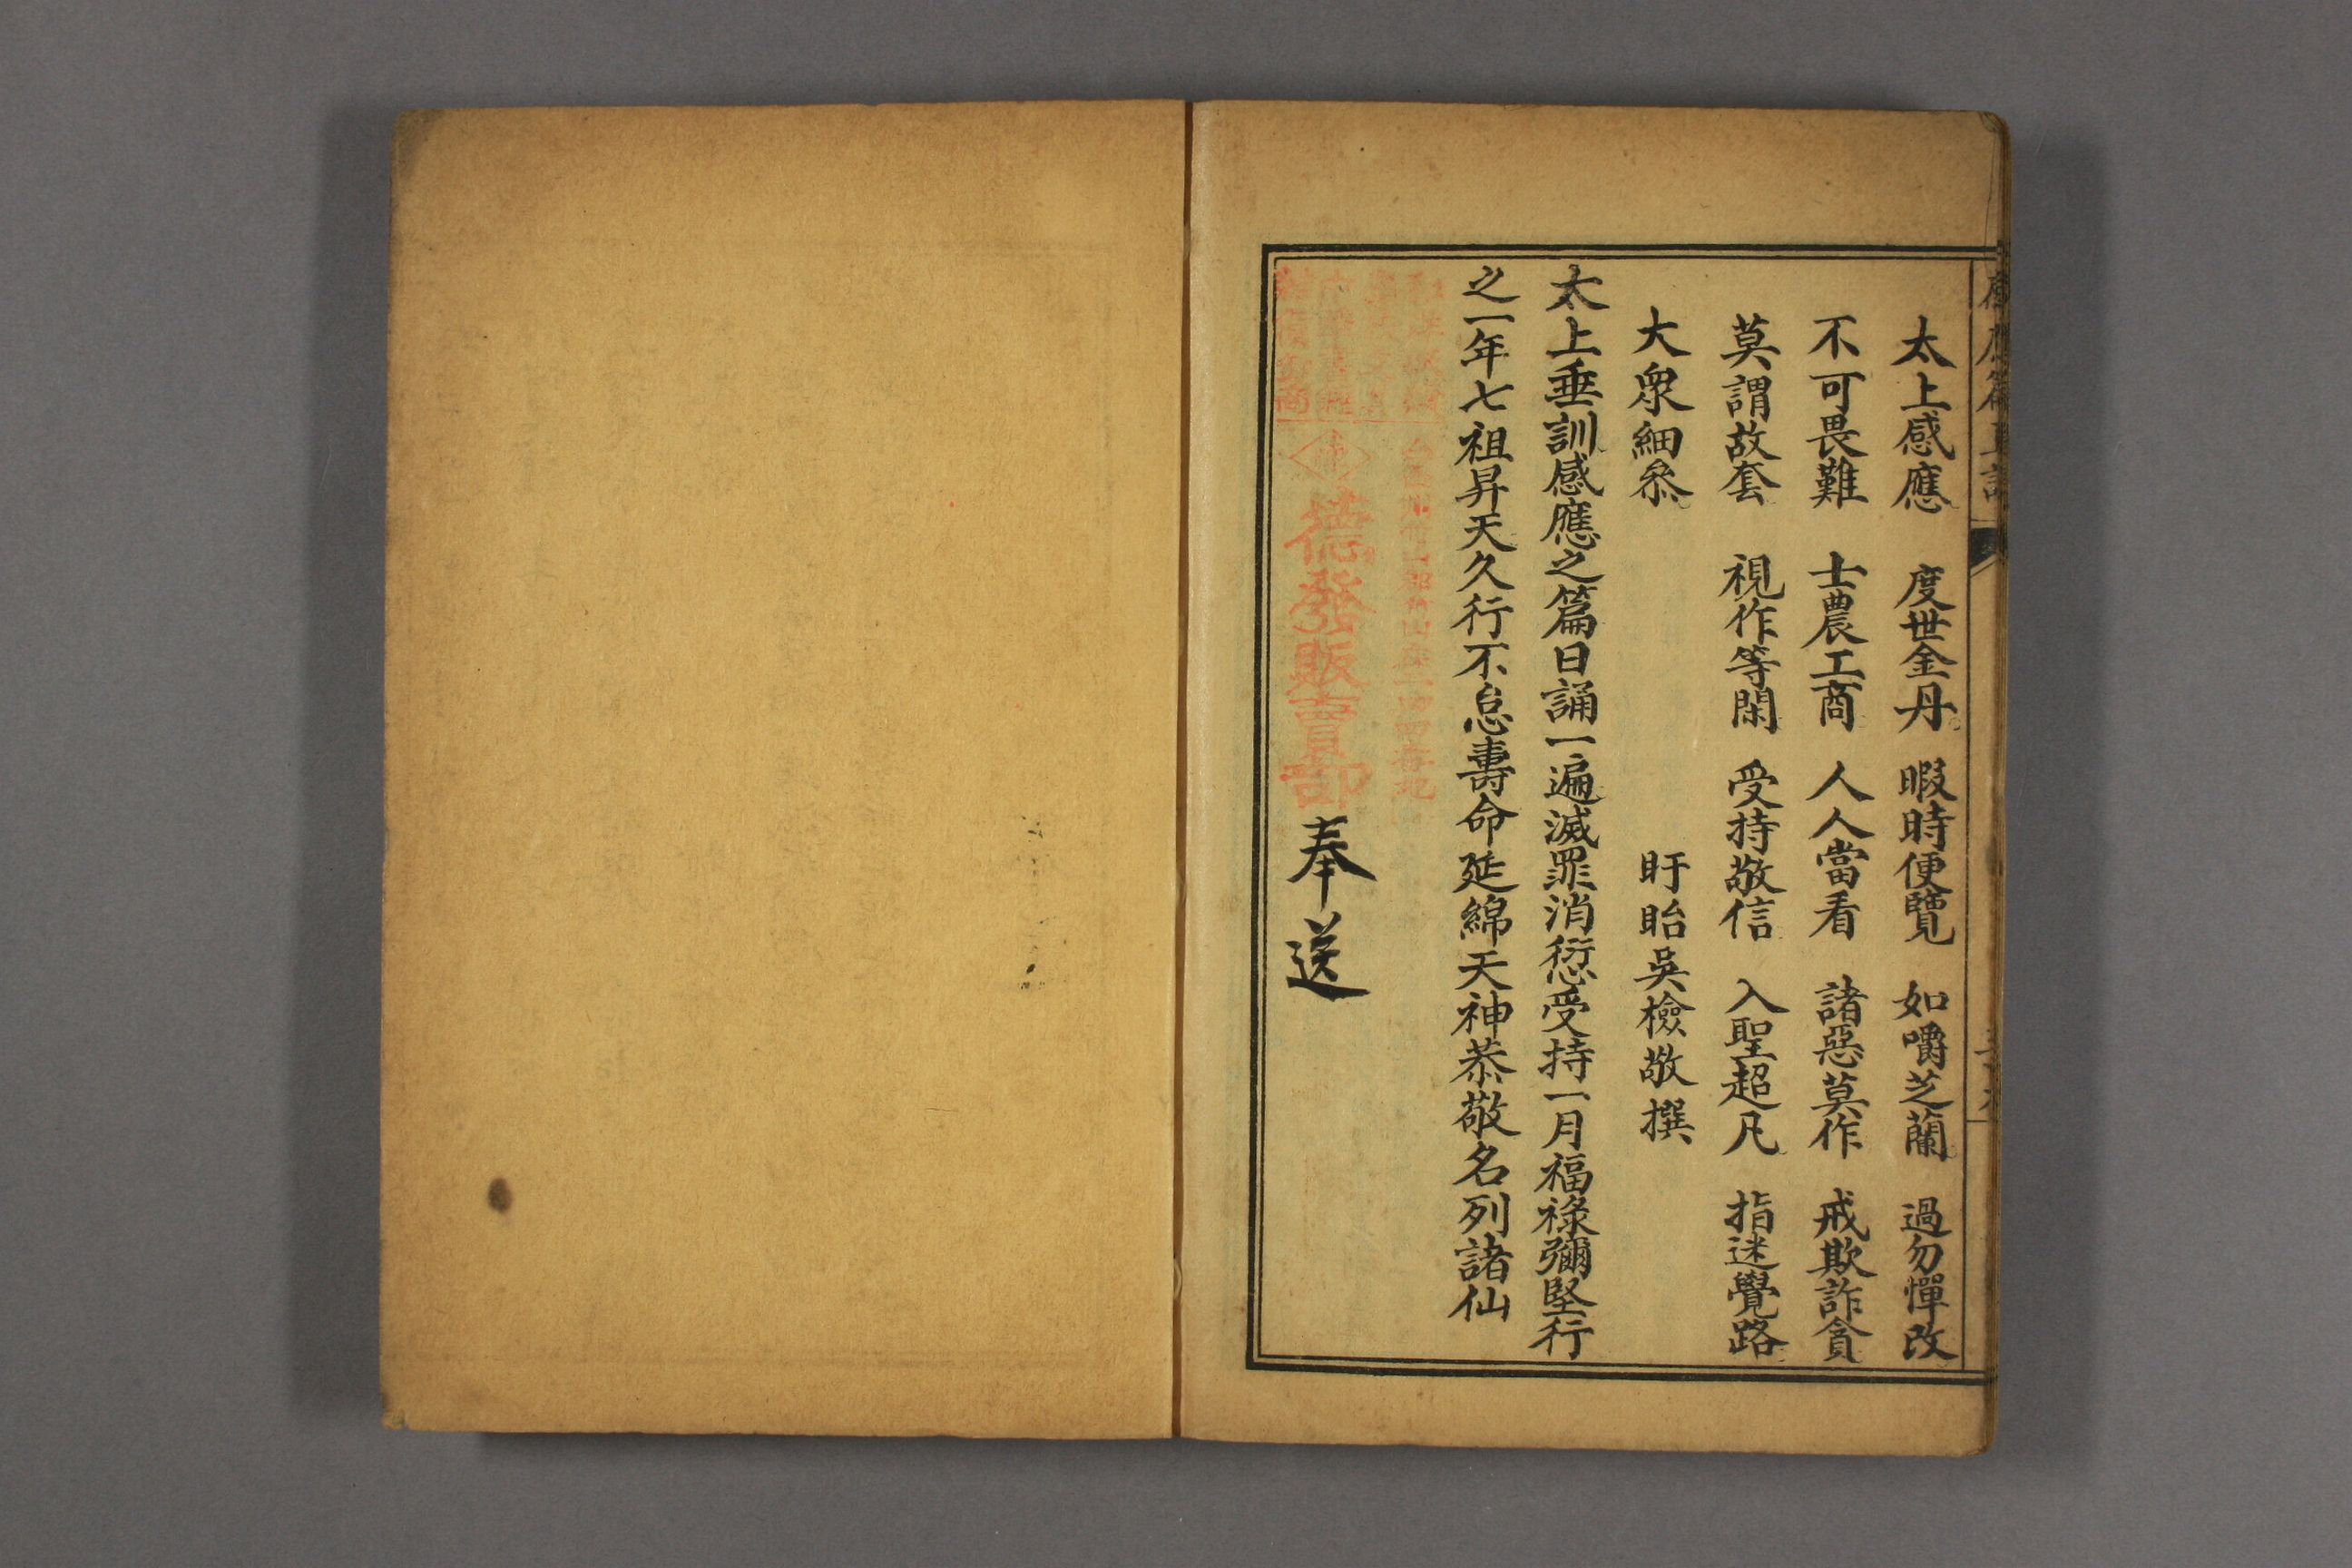 太上感應　度世金丹　暇時便覽　如嚼芝蘭　過勿憚改
不可畏難　士農工商　人人當看　諸惡莫作　戒欺詐貪
莫謂故套　視作等閑　受持敬信　入聖超凡　指迷覺路
大衆細叅　盱眙吳檢敬撰
太上垂訓感應之篇日誦一遍滅罪消愆受持一月福祿彌堅行
之一年七祖昇天久行不怠壽命延綿天神恭敬名列諸仙
德發販賣部
奉送